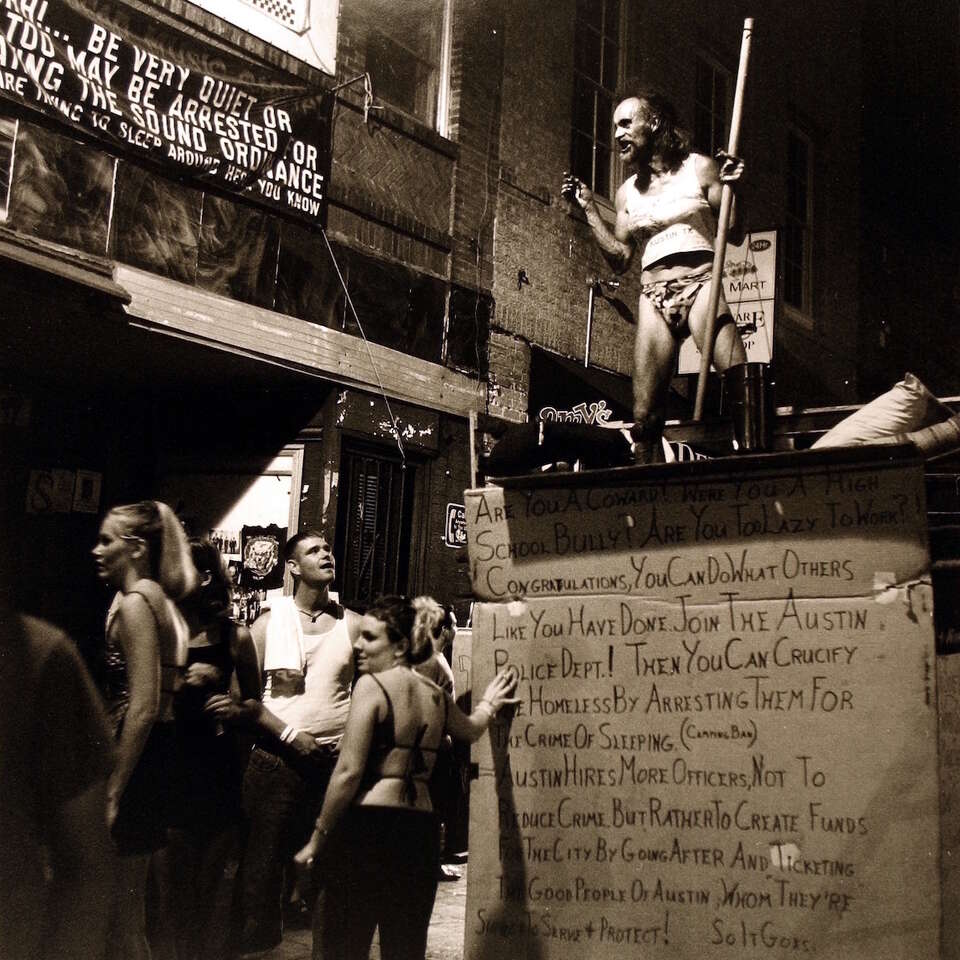 BE VERY QUIET OR
TOO MAY BE ARRESTED FOR
THE SOUND ORDINANCE
ARE TRYING TO SLEEP AROUND HERE YOU KNOW
AUSTIN TX
24Hr
MART
ARE YOU A COWARD! WERE YOU A HIGH
SCHOOL BULLY! ARE YOU TOO LAZY TO WORK!
CONGRATULATIONS, YOU CAN DO WHAT OTHERS
LIKE YOU HAVE DONE. JOIN THE AUSTIN
POLICE DEPT.! THEN YOU CAN CRUCIFY
THE HOMELESS BY ARRESTING THEM FOR
THE CRIME OF SLEEPING. (CAMPING BAN)
AUSTIN HIRES MORE OFFICERS, NOT TO
REDUCE CRIME BUT RATHER TO CREATE FUNDS
FOR THE CITY BY GOING AFTER AND TICKETING
THE GOOD PEOPLE OF AUSTIN, WHOM THEY'RE
TO SERVE + PROTECT! SO IT GOES.